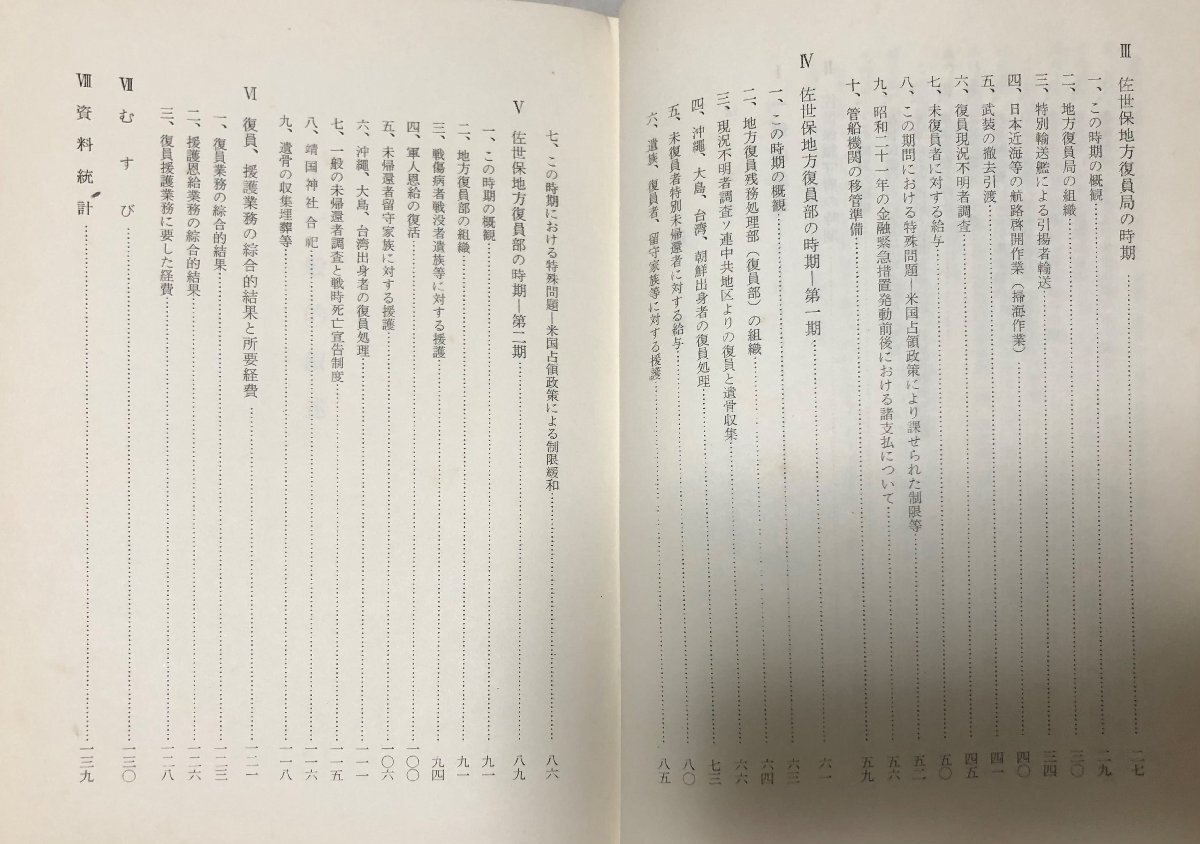 Ⅲ 佐世保地方復員局の時期……二七
一、この時期の概観……二九
二、地方復員局の組織……三〇
三、特別輸送艦による引揚者輸送……三四
四、日本近海等の航路啓開作業（掃海作業）……四〇
五、武装の撤去引渡……四一
六、復員現況不明者調査……四五
七、未復員者に対する給与……五〇
八、この期間における特殊問題―米国占領政策により課せられた制限等……五二
九、昭和二十一年の金融緊急措置発動前後における諸支払について……五六
十、管船機関の移管準備……五九
Ⅳ 佐世保地方復員部の時期 第一期……六一
一、この時期の概観……六三
二、地方復員残務処理部（復員部）の組織……六四
三、現況不明者調査ソ連中共地区よりの復員と遺骨収集……六六
四、沖繩、大島、台湾、朝鮮出身者の復員処理……七三
五、未復員者特別未帰還者に対する給与……八〇
六、遺族、復員者、留守家族等に対する援護……八五
七、この時期における特殊問題―米国占領政策による制限緩和……八六
Ⅴ 佐世保地方復員部の時期―第二期……八九
一、この時期の概観……九一
二、地方復員部の組織……九一
三、戦傷病者戦没者遺族等に対する援護……九四
四、軍人恩給の復活……一〇〇
五、未帰還者留守家族に対する援護……一〇六
六、沖繩、大島、台湾出身者の復員処理……一一一
七、一般の未帰還者調査と戦時死亡宣告制度……一一五
八、靖国神社合祀……一一六
九、遺骨の収集埋葬等……一一八
Ⅵ 復員、援護業務の綜合的結果と所要経費……一二一
一、復員業務の綜合的結果……一二三
二、援護恩給業務の綜合的結果……一二六
三、復員援護業務に要した経費……一二八
Ⅶ むすび……一三〇
Ⅷ 資料統計……一三九